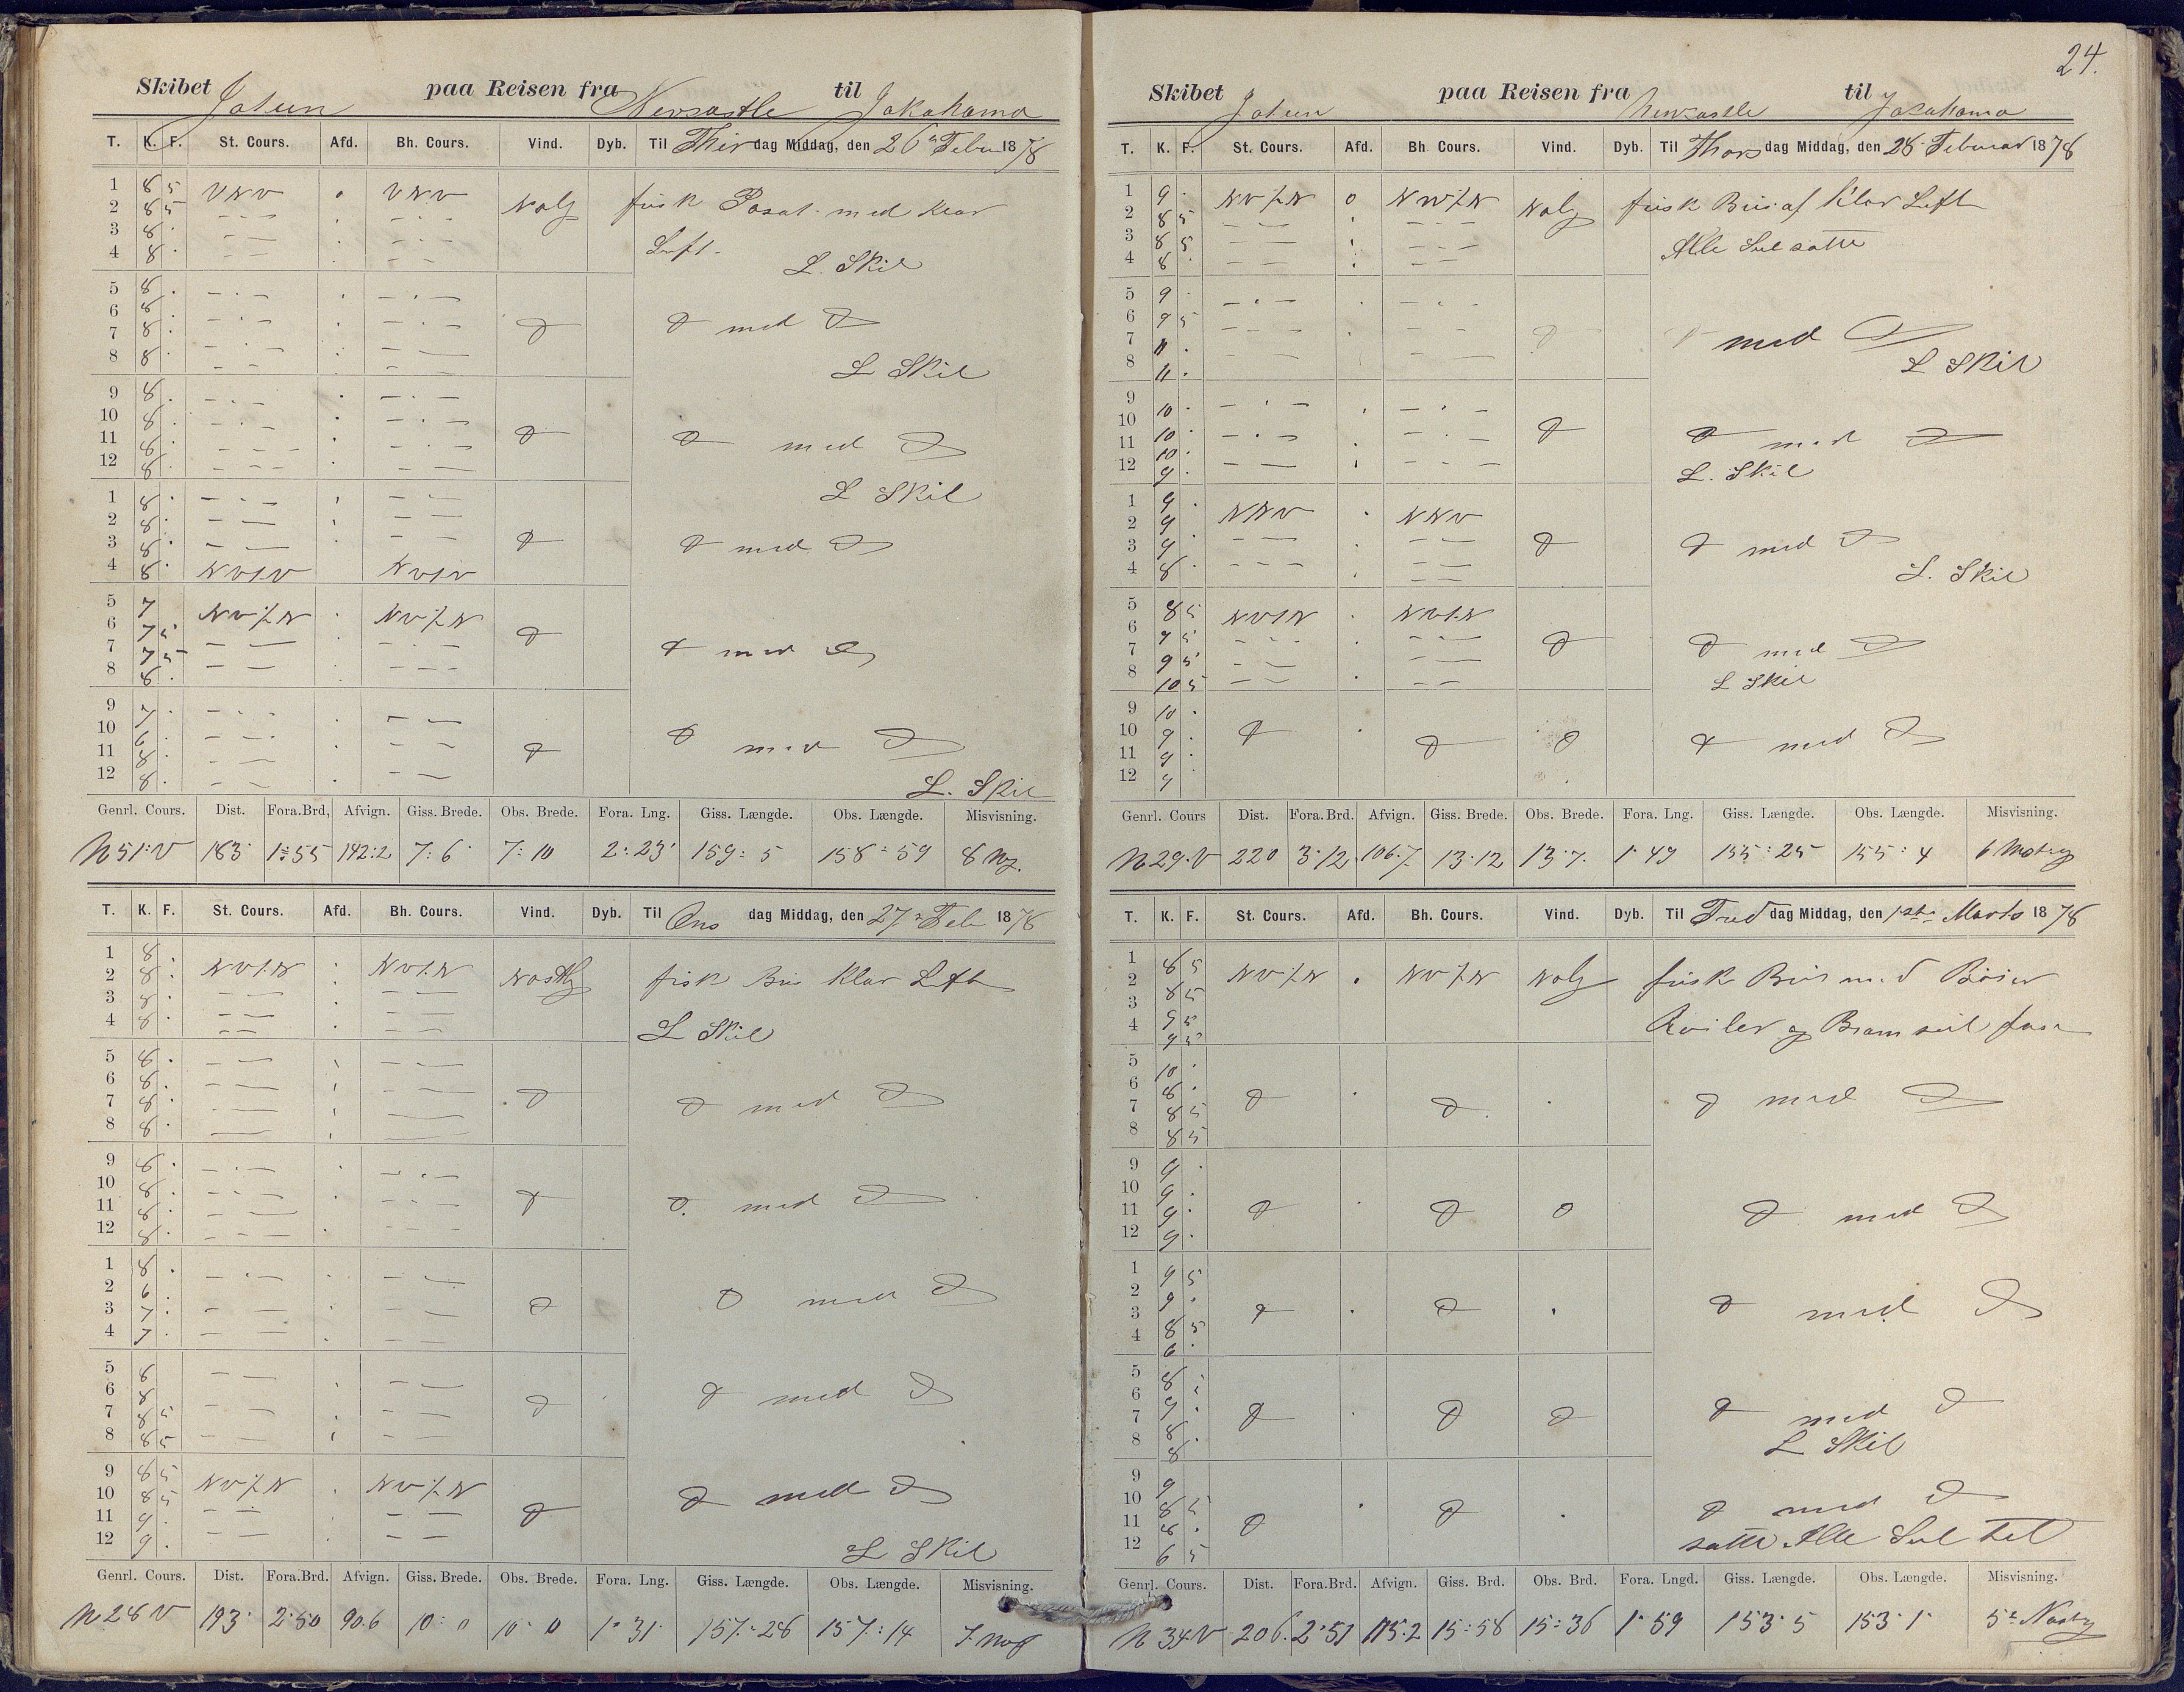 Skibet Jotun paa Reisen fra Newcastle til Jokohama
T. K. F. St. Cours. Afd. Bh. Cours. Vind. Dyb. Til Thirsdag Middag, den 26 Febru 1878
1 8 5 VNV VNV Nolg frisk Pasat med klar
2 8 5
3 8 Luft.
4 8 L. Skil
5 8
6 8
7 8 med
8 8 L Skil
9 8
10 8
11 8 med
12 8 L Skil
1 8
2 8
3 8 med
4 8
5 7 NV/.N NV/.N
6 7 5
7 7 5 med
8 8
9 7
10 6 med
11 8
12 8 L. Skil
Genrl. Cours. Dist. Fora.Brd, Afvign. Giss. Brede. Obs. Brede. Fora. Lng. Giss. Længde. Obs. Længde. Misvisning.
N 51 V 183 1:55 142:2 7:6 7:10 2:23 159:5 158:59
T. K. F. St. Cours. Afd. Bh. Cours. Vind. Dyb. Til Ons dag Middag, den 27 Feb 1878
1 8
2 8 NV/.N NV/.N Nostlg frisk Bris klar Luft
3 8
4 8 L Skil
5 8
6 8
7 8 med
8 8
9 8
10 8
11 8 med
12 8
1 8
2 6
3 7 med
4 7
5 8
6 8
7 8 5 med
8 8 5
9 8 5 NV/.N NV/.N
10 8 5 med
11 9
12 9 L Skil
Genrl. Cours. Dist. Fora.Brd. Afvign. Giss. Brede. Obs. Brede. Fora. Lng. Giss. Længde. Obs. Længde. Misvisning.
N 28 V 193 2:50 90.6 10:0 10:0 1:31 157:28 157:14
24.
Skibet Jotun paa Reisen fra Newcastle til Jokohama
T. K. F. St. Cours. Afd. Bh. Cours. Vind. Dyb. Til Thorsdag Middag, den 28 Februar 1878
1 9 NV/.N 0 NV/.N Nolg frisk Bris af klar Luft
2 8 5
3 8 5 Alle Seil satte
4 8
5 9
6 9 5
7 11 med
8 11 L Skil
9 10
10 10
11 10 med
12 9 L. Skil
1 9
2 9 NNV NNV
3 9 med
4 8 L. Skil
5 8 5 NV/.N NV/.N
6 9 5
7 9 5 med
8 10 5 L Skil
9 10
10 9
11 9 med
12 9
Genrl. Cours Dist. Fora.Brd. Afvign. Giss. Brede. Obs. Brede. Fora. Lng. Giss. Længde. Obs. Længde. Misvisning.
N 29 V 220 3:12 106.7 13:12 13:7 1:49 155:25 155:4
T. K. F. St. Cours. Afd. Bh. Cours. Vind. Dyb. Til Freddag Middag, den 1ste Marts 1878
1 8 5
2 8 5 NV/.N NV/.N Nolg frisk Bris med Bøier
3 9 5
4 9 5 Roiler og Bramseil
5 10
6 8
7 8 5 med
8 8 5
9 9
10 9
11 9 med
12 9
1 9 5
2 9
3 8 5 med
4 6
5 8
6 9
7 8 med
8 8 L Skil
9 9
10 8 5 med
11 8
12 6 5 satte Alle Seil til
Genrl. Cours. Dist. Fora.Brd. Afvign. Giss. Brd. Obs. Brd. Fora. Lngd. Giss. Længde. Obs. Længde. Misvisning.
N 34 V 206 2:51 115.2 15:58 15:36 1:59 153:5 153:1